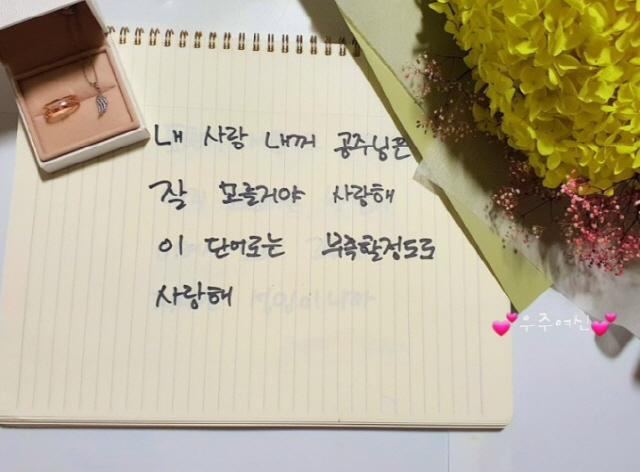 내 사랑 내꺼 공주님은
잘 모를거야 사랑해
이 단어로는 부족할정도로
사랑해
우주여신